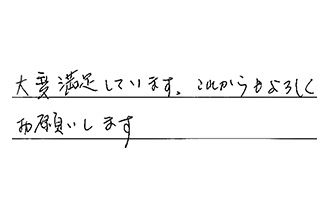 大変満足しています。これからもよろしく
お願いします